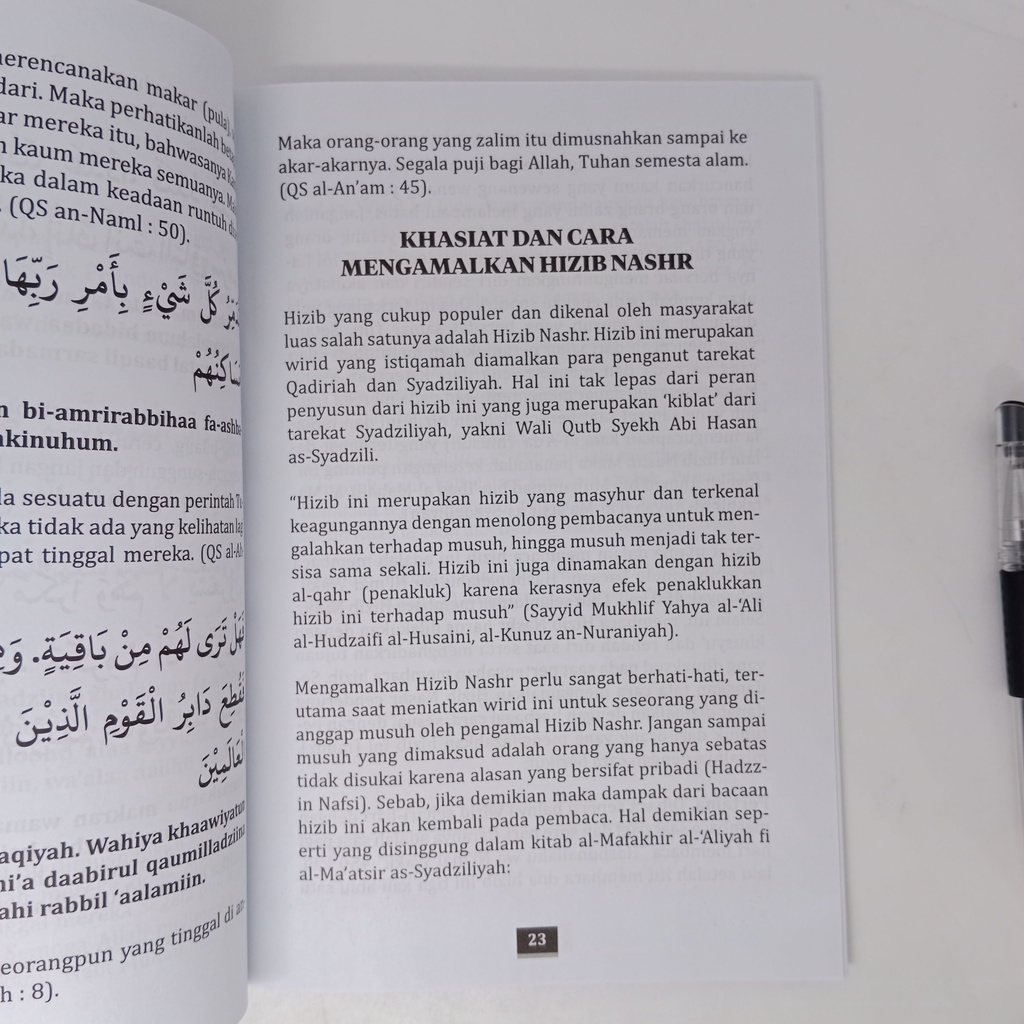 merencanakan makar (pula),
dari. Maka perhatikanlah
mereka itu, bahwasanya
kaum mereka semuanya.
dalam keadaan runtuh
(QS an-Naml : 50).
كُلَّ شَيْءٍ بِأَمْرِ رَبِّهَا
bi-amrirabbihaa
sesuatu dengan perintah
tidak ada yang kelihatan
tinggal mereka. (QS
تَرَى لَهُمْ مِنْ بَاقِيَةٍ.
دَابِرُ الْقَوْمِ الَّذِيْنَ
Wahiya khaawiyatun
daabirul qaumilladziina
rabbil ‘aalamiin.
yang tinggal di
: 8).
Maka orang-orang yang zalim itu dimusnahkan sampai ke
akar-akarnya. Segala puji bagi Allah, Tuhan semesta alam.
(QS al-An’am : 45).
KHASIAT DAN CARA
MENGAMALKAN HIZIB NASHR
Hizib yang cukup populer dan dikenal oleh masyarakat
luas salah satunya adalah Hizib Nashr. Hizib ini merupakan
wirid yang istiqamah diamalkan para penganut tarekat
Qadiriah dan Syadziliyah. Hal ini tak lepas dari peran
penyusun dari hizib ini yang juga merupakan ‘kiblat’ dari
tarekat Syadziliyah, yakni Wali Qutb Syekh Abi Hasan
as-Syadzili.
“Hizib ini merupakan hizib yang masyhur dan terkenal
keagungannya dengan menolong pembacanya untuk men-
galahkan terhadap musuh, hingga musuh menjadi tak ter-
sisa sama sekali. Hizib ini juga dinamakan dengan hizib
al-qahr (penakluk) karena kerasnya efek penaklukkan
hizib ini terhadap musuh” (Sayyid Mukhlif Yahya al-‘Ali
al-Hudzaifi al-Husaini, al-Kunuz an-Nuraniyah).
Mengamalkan Hizib Nashr perlu sangat berhati-hati, ter-
utama saat meniatkan wirid ini untuk seseorang yang di-
anggap musuh oleh pengamal Hizib Nashr. Jangan sampai
musuh yang dimaksud adalah orang yang hanya sebatas
tidak disukai karena alasan yang bersifat pribadi (Hadzz-
in Nafsi). Sebab, jika demikian maka dampak dari bacaan
hizib ini akan kembali pada pembaca. Hal demikian sep-
erti yang disinggung dalam kitab al-Mafakhir al-‘Aliyah fi
al-Ma’atsir as-Syadziliyah:
23